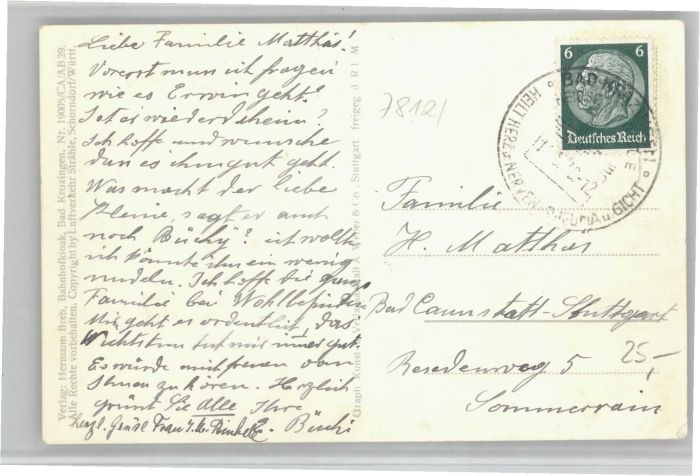 Liebe Familie Matthäs!
Vorerst muss ich fragen
wie es Erwin geht?
Ist er wieder daheim?
Ich hoffe und wünsche
dass es ihm gut geht.
Was macht der liebe
Kleine, sagt er auch
noch Büchÿ? ich wollte
ich könnte ihn ein wenig
nudeln. Ich hoffe die ganze
Familie bei Wohlbefinden
Mir geht es ordentlich, das
tut mir immer gut.
Es würde mich freuen von
Ihnen zu hören. Herzlich
grüsst Sie alle Ihre
E. Büchi
Herzl. Grüsse Frau
Verlag: Hermann Breh, Bahnhofkiosk, Bad Krozingen. Nr. 19005/CA/AB 29.
Alle Rechte vorbehalten. Copyright by Luftverkehr Strähle, Schorndorf/Württ.
Graph. Kunst- u. Verlagsanstalt & Co., Stuttgart. freigeg. d. R L M
7812/
6 6
Deutsches Reich
BAD KROZINGEN
HEILT HERZ- NERVEN- RHEUMA u. GICHT
Familie
H. Matthäs
Bad Cannstatt-Stuttgart
Resedenweg 5
25,-
Sommerrain